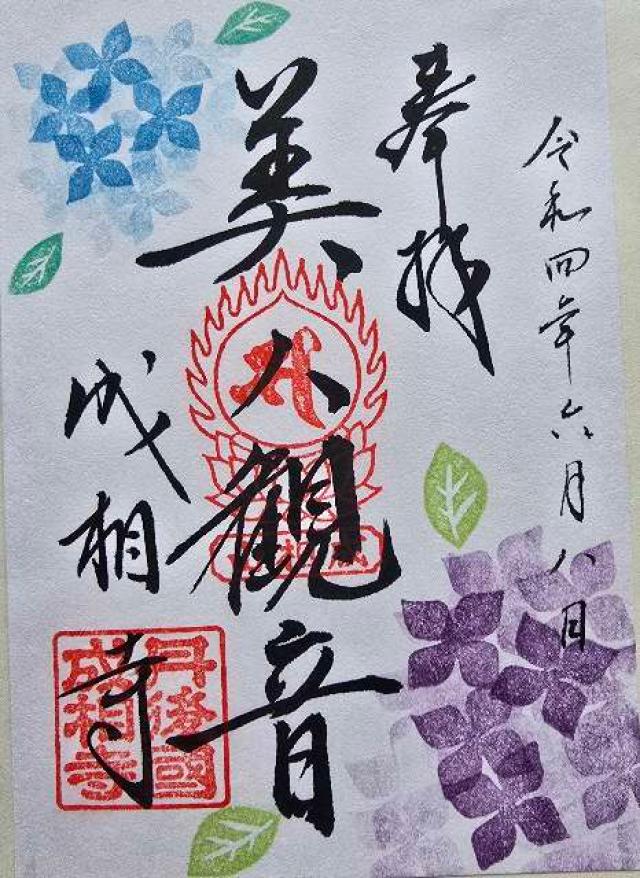 令和四年六月八日
奉拝
美人観音
成相寺
丹後國
成相寺